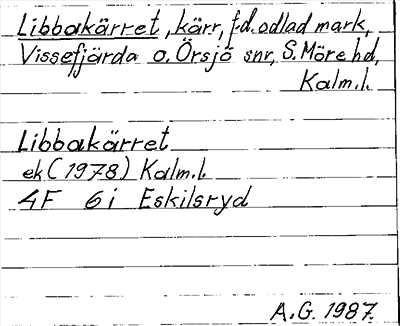 Libbakärret, kärr, f.d. odlad mark,
Vissefjärda o. Örsjö snr, S. Möre hd,
Kalm.l.
Libbakärret
ek (1978) Kalm.l.
4F 6i Eskilsryd
A.G. 1987.